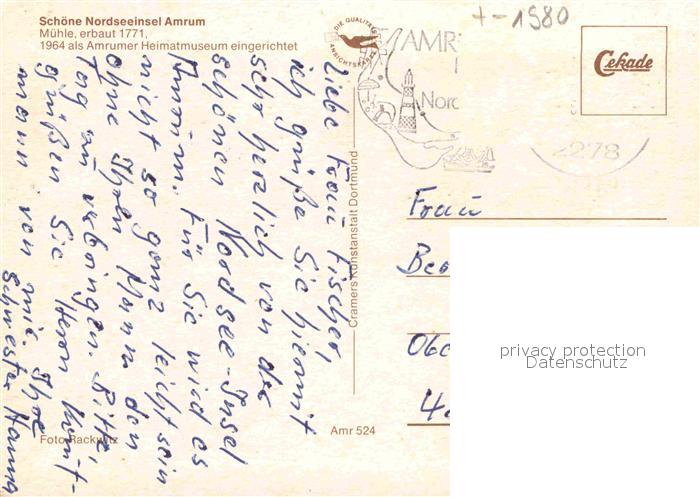 Schöne Nordseeinsel Amrum
Mühle, erbaut 1771,
1964 als Amrumer Heimatmuseum eingerichtet
DIE QUALITÄTS
ANSICHTSKARTE
+-1980
Cekade
AMR
Nord
2278
Liebe Frau Fischer,
ich grüße Sie hiermit
sehr herzlich von der
schönen Nordsee-Insel
Amrum. Für Sie wird es
nicht so ganz leicht sein
ohne Ihren Mann den
Tag zu verbringen. Bitte,
grüßen Sie Herrn
mann von mir. Ihre
Schwester Hanna
Cramers Kunstanstalt Dortmund
Frau
Foto Rackwitz
Amr 524
privacy protection
Datenschutz